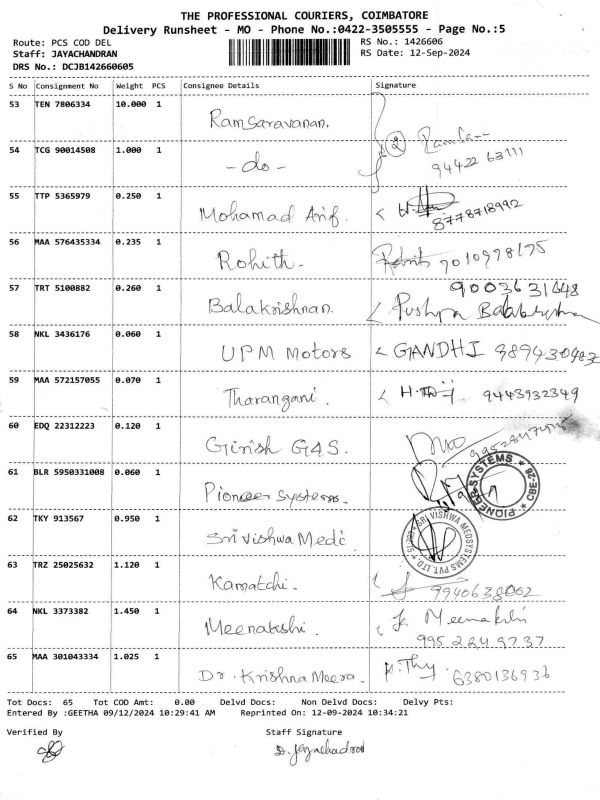 THE PROFESSIONAL COURIERS, COIMBATORE
Delivery Runsheet - MO - Phone No.:0422-3505555 - Page No.:5
Route: PCS COD DEL RS No.: 1426606
Staff: JAYACHANDRAN RS Date: 12-Sep-2024
DRS No.: DCJB142660605
S No Consignment No Weight PCS Consignee Details Signature
53 TEN 7806334 10.000 1 Ramsaravanan.
54 TCG 90014508 1.000 1 -do- 2 94422 63111
55 TTP 5365979 0.250 1 Mohamad Arif. 8778718992
56 MAA 576435334 0.235 1 Rohith.
57 TRT 5100882 0.260 1 Balakrishnan. 9003631648
Pushpa
58 NKL 3436176 0.060 1 UPM Motors GANDHI
59 MAA 572157055 0.070 1 Tharangani. 9443932349
60 EDQ 22312223 0.120 1 Girish GAS.
61 BLR 5950331008 0.060 1 Pioneer Systems. PIONEER SYSTEMS CBE-28
62 TKY 913567 0.950 1 Sri Vishwa Medc SRI VISHWA MEDSYSTEMS PVT. LTD
63 TRZ 25025632 1.120 1 Kamatchi.
64 NKL 3373382 1.450 1 Meenakshi. Meenakshi
65 MAA 301043334 1.025 1 Dr. Krishna Meera. 6380136936
Tot Docs: 65 Tot COD Amt: 0.00 Delvd Docs: Non Delvd Docs: Delvy Pts:
Entered By :GEETHA 09/12/2024 10:29:41 AM Reprinted On: 12-09-2024 10:34:21
Verified By Staff Signature